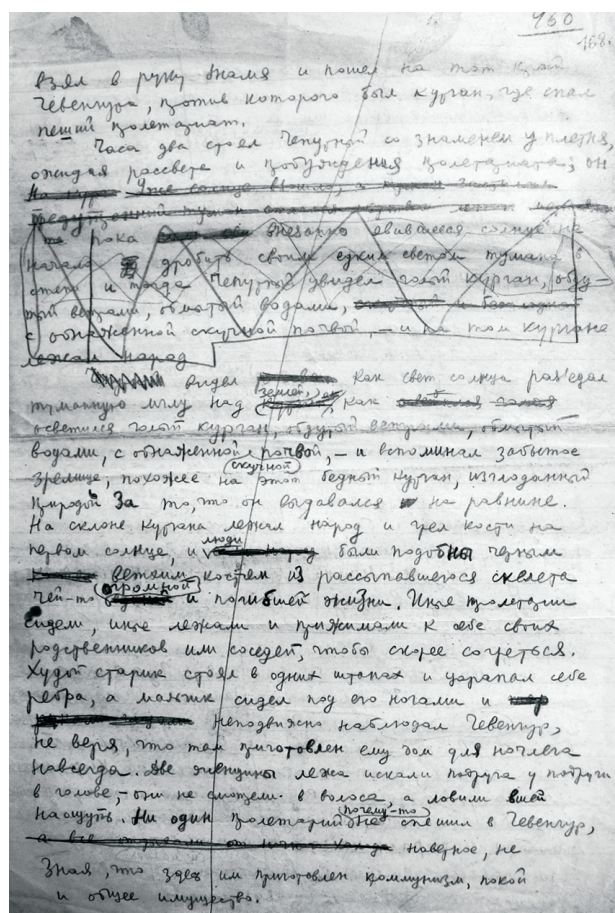 160
168.
взял в руку знамя и пошел на тот край
Чевенгура, против которого был курган, где спал
пеший пролетариат.
Часа два стоял Чепурный со знаменем у плетня,
ожидая рассвета и пробуждения пролетариата; он
Уже солнце вышло, а
туман
пока внезапно явившееся солнце не
начало дробить своим едким светом тумана в
степи и тогда Чепурный увидел голый курган, обду-
тый ветрами, обмытый водами,
с обнаженной скучной почвой, – и на том кургане
лежал народ
видел как свет солнца разъедал
туманную мглу над землей, как
осветился голый курган, обдутый ветрами, обмытый
водами, с обнаженной скучной почвой, – и вспоминал забытое
зрелище, похожее на этот бедный курган, изглоданный
природой за то, что он выдавался на равнине.
На склоне кургана лежал народ и грел кости на
первом солнце, и люди были подобны черным
ветхим костям из рассыпавшегося скелета
чей-то огромной и погибшей жизни. Иные пролетарии
сидели, иные лежали и прижимали к себе своих
родственников или соседей, чтобы скорее согреться.
Худой старик стоял в одних штанах и царапал себе
ребра, а мальчик сидел под его ногами и
неподвижно наблюдал Чевенгур,
не веря, что там приготовлен ему дом для ночлега
навсегда. Две женщины лежа искали подруга у подруги
в голове, – они не смотрели в волоса, а ловили вшей
наощупь. Ни один пролетарий почему-то не спешил в Чевенгур,
наверное, не
зная, что здесь им приготовлен коммунизм, покой
и общее имущество.